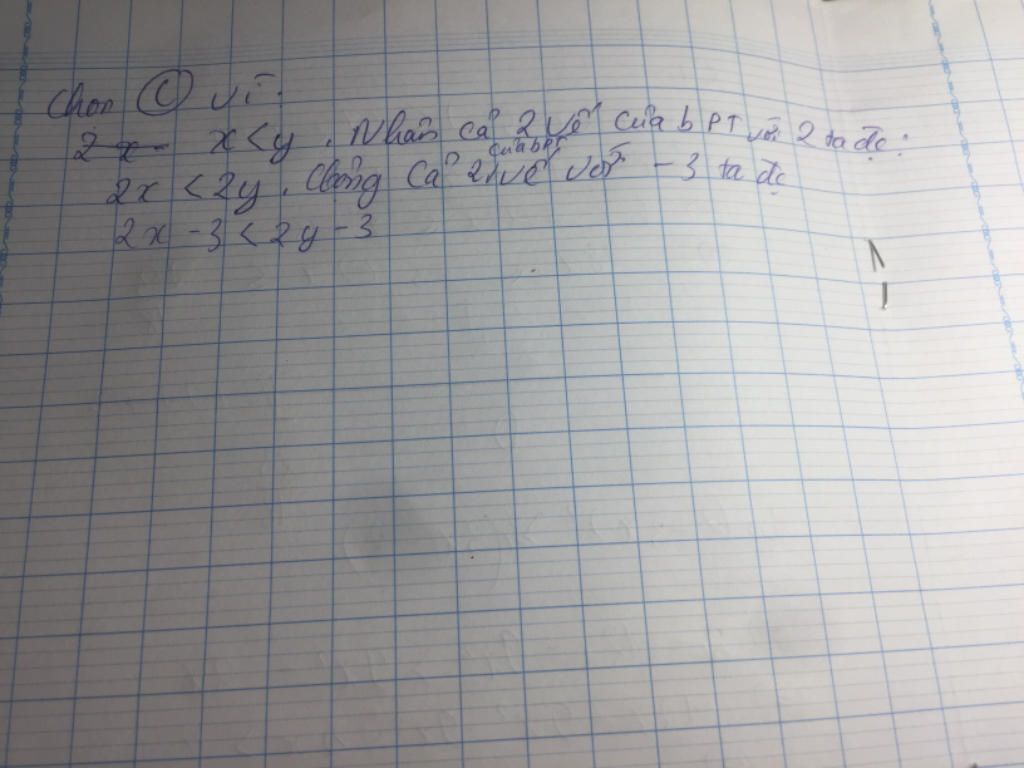 Chọn C vì:
2x x < y . Nhân cả 2 vế của b PT với 2 ta đc:
của bPT
2x < 2y . Cộng cả 2 vế với -3 ta đc
2x - 3 < 2y - 3